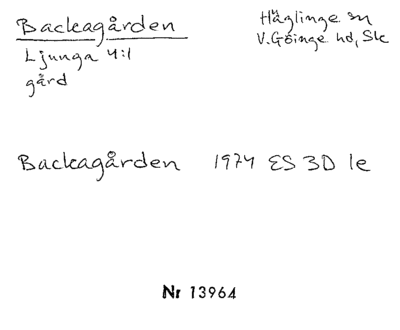 Backagården
Ljunga 4:1
gård
Häglinge sn
V. Göinge hd, Sk
Backagården 1974 ES 3D 1e
Nr 13964